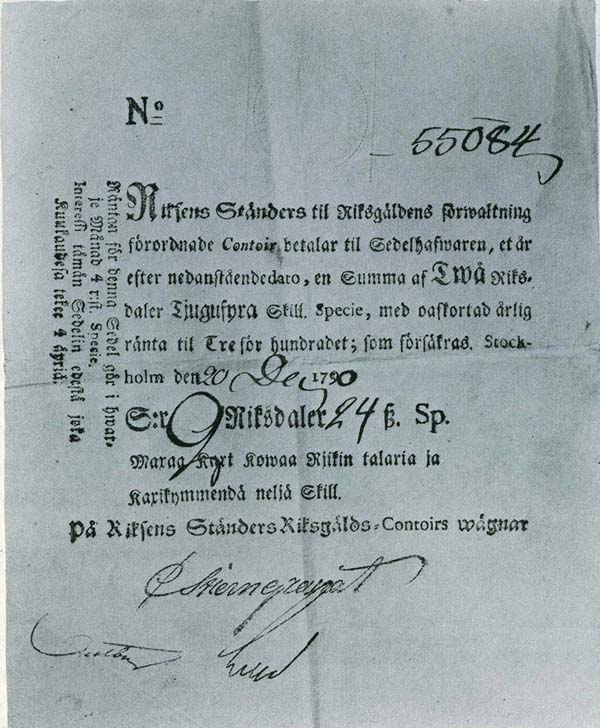 No
55084
Riksens Ständers til Riksgäldens förwaltning
förordnade Contoir betalar til Sedelhafwaren, et år
efter nedanståendedato, en Summa af Twå Riks-
daler Tjugufyra Skill. Specie, med oafkortad årlig
ränta til Tre för hundradet; som försäkras. Stock-
holm den 20 Dec 1790
S:r 2 Riksdaler 24 ß. Sp.
Maxaa Kyxt Kowaa Rjikin talaria ja
Kaxikymmendä neljä Skill.
På Riksens Ständers Riksgälds-Contoirs wägnar
Räntan för denna Sedel gör i hwar-
je Månad 4 rst. Specie.
Interessi tämän Sedelin edestä joka
Kuukaudesa tekee 4 äyriä.